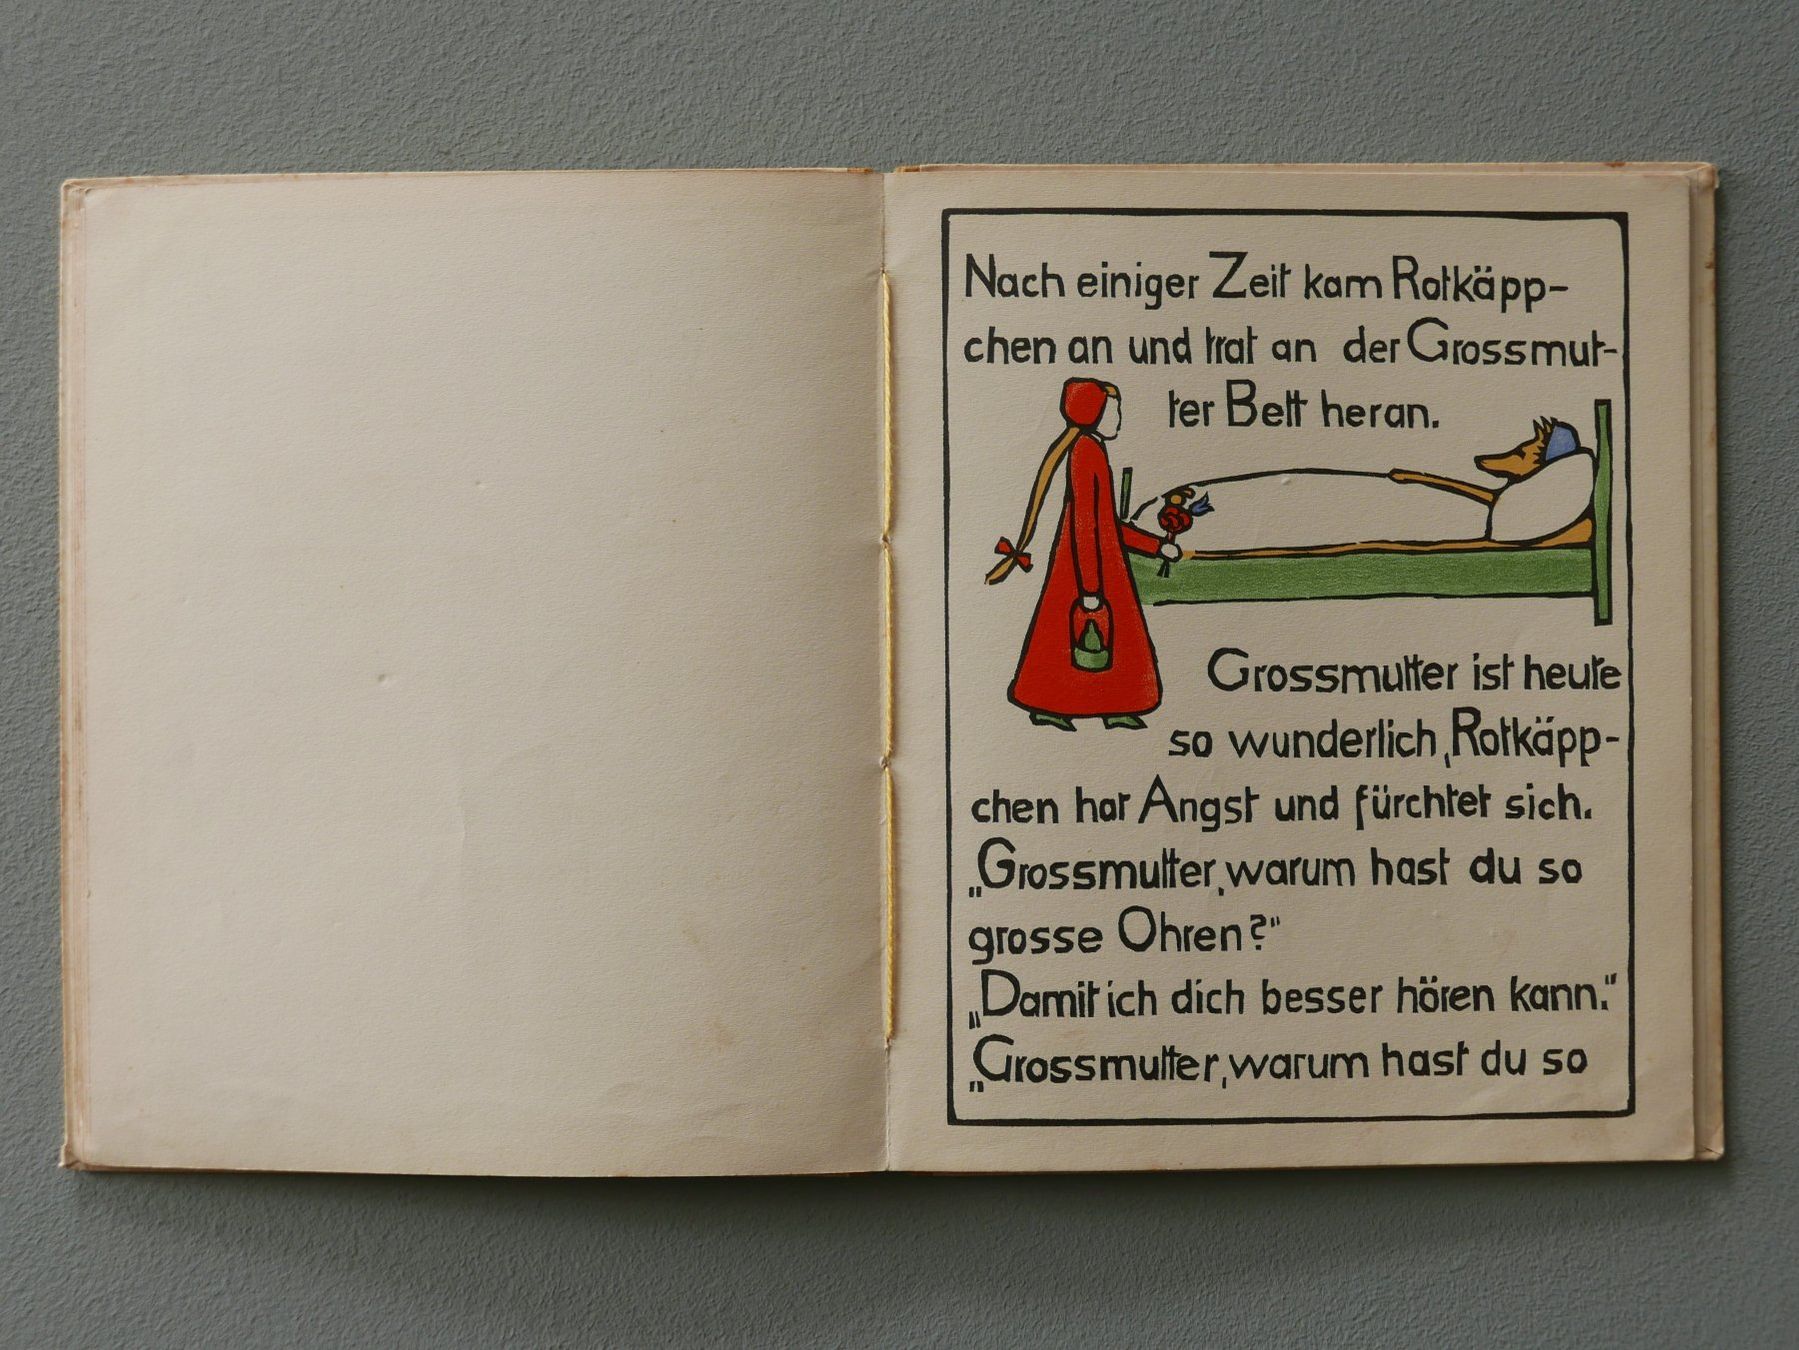 Nach einiger Zeit kam Rotkäpp-
chen an und trat an der Grossmut-
ter Bett heran.
Grossmutter ist heute
so wunderlich, Rotkäpp-
chen hat Angst und fürchtet sich.
„Grossmutter, warum hast du so
grosse Ohren?"
„Damit ich dich besser hören kann."
„Grossmutter, warum hast du so